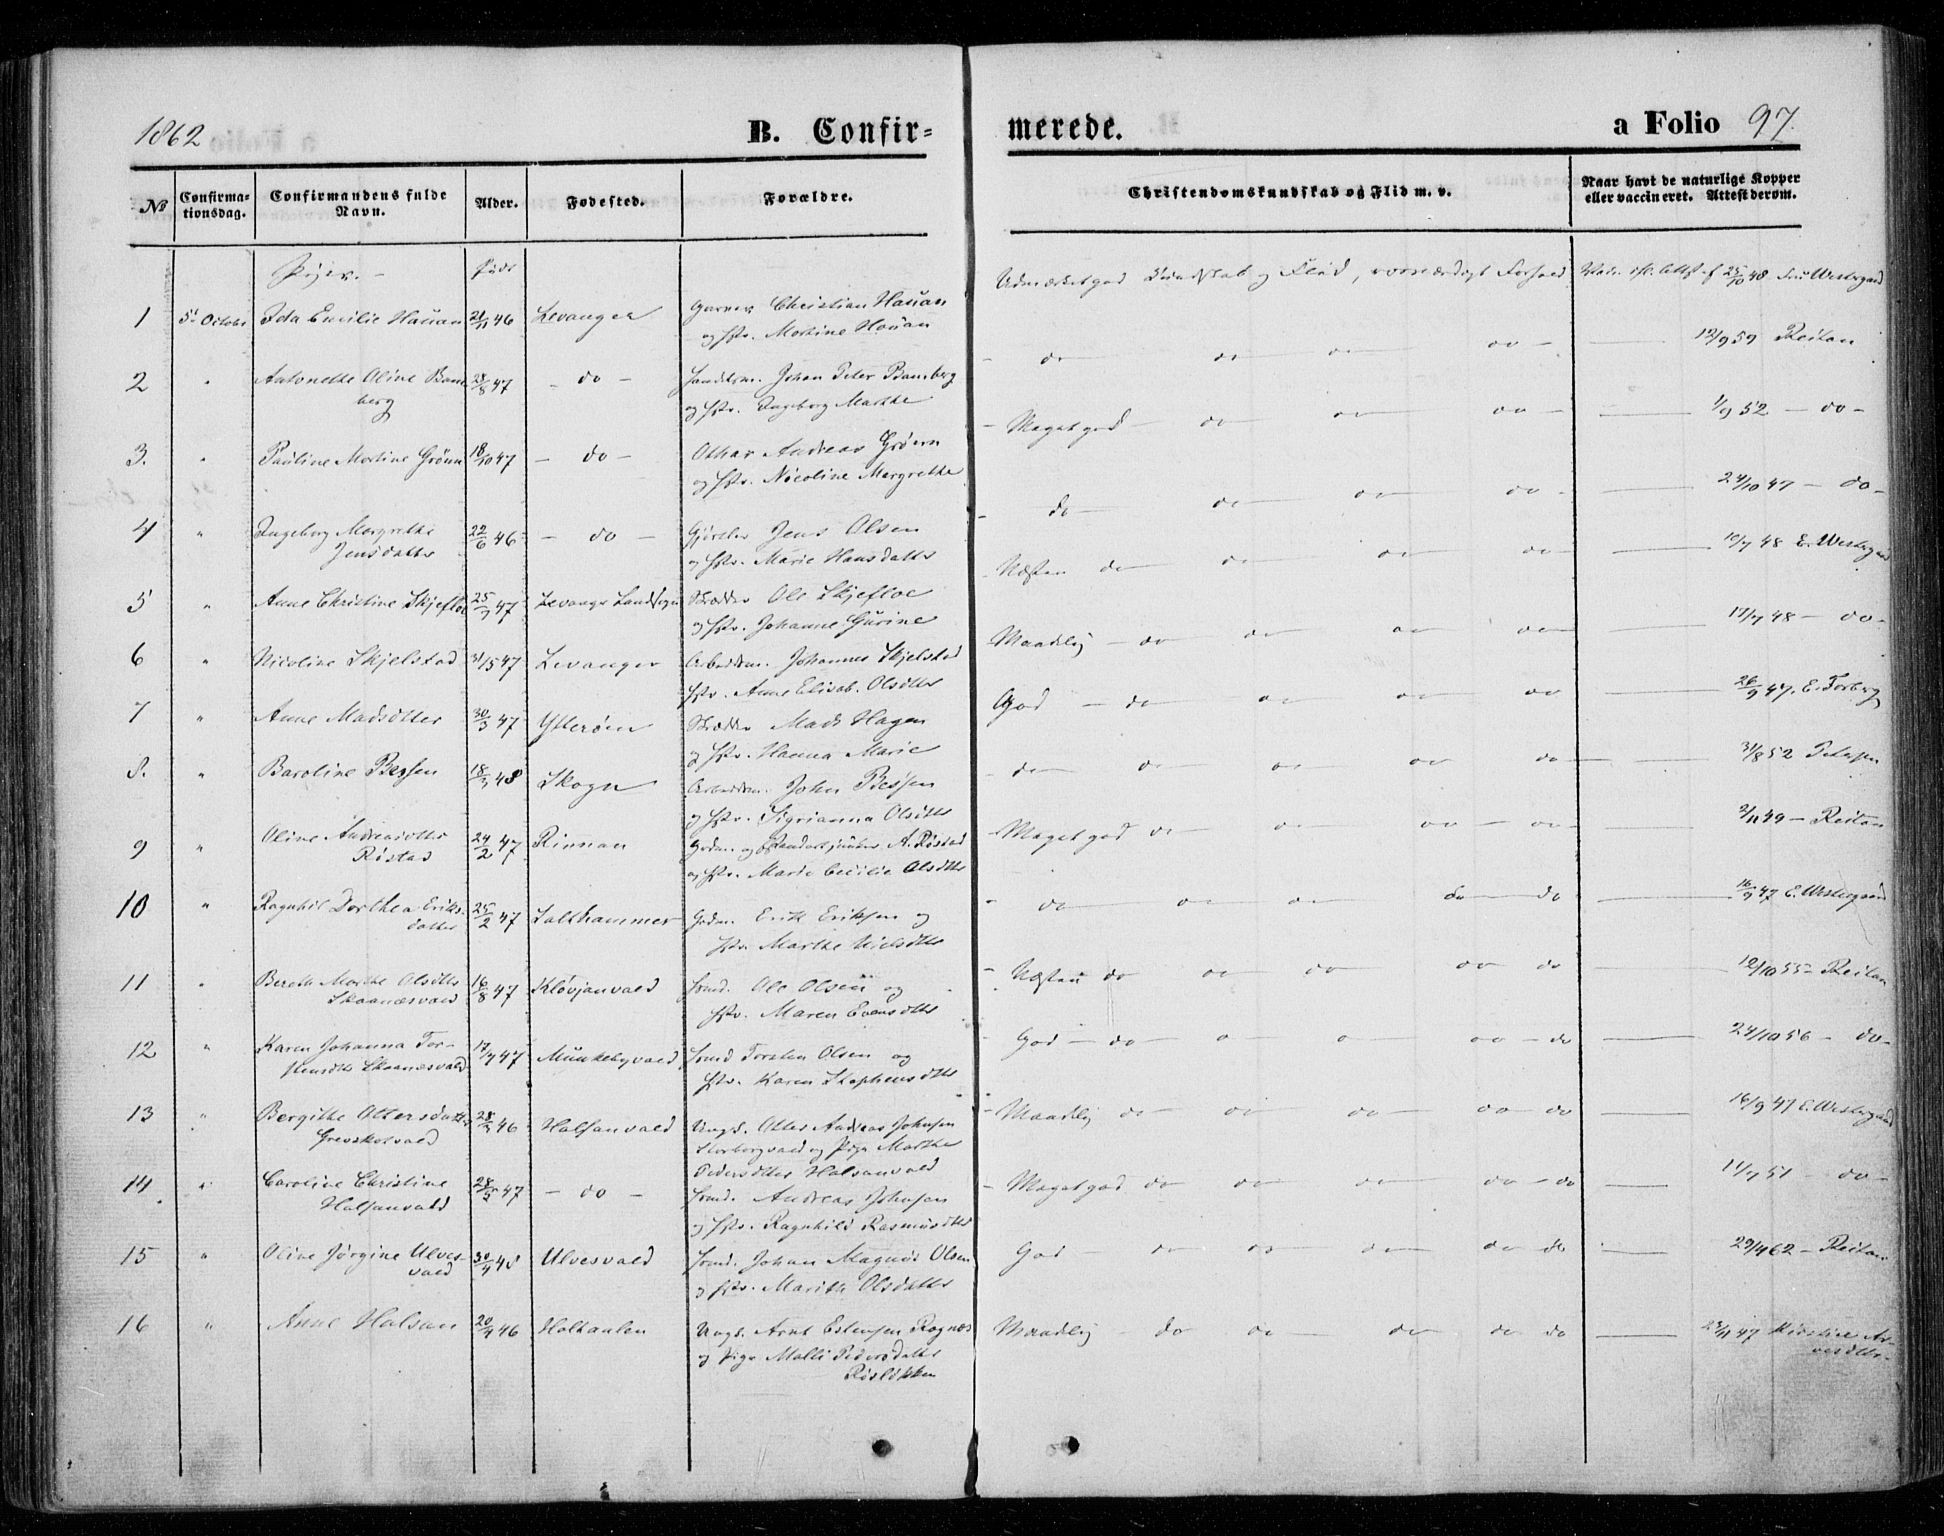 1862 B. Confir= merede. a Folio 97.
No Confirma-tionsdag. Confirmandens fulde Navn. Alder. Fødested. Forældre. Christendomskundskab og Flid m. v. Naar havt de naturlige Kopper eller vaccineret. Attest derom.
Piger. - Født
1 5te October Ida Emilie Hauan 21/11 46 Levanger Garver Christian Hauan
og Hstr. Martine Hauan
Udmærket god Kundskab og Flid, Forhold 25/10 48 Westergaard
2 " Antonette Oline Bam-
berg 28/8 47 - do - Handelsm. Johan Peter Bamberg
og Hstr. Ingeborg Marthe
- do do do do - 12/9 59 Reitan
3. " Pauline Martine Grönn 18/10 47 - do - Othar Andreas Grönn
og Hstr. Nicoline Margrethe
- Meget god - do do do - 1/9 52 - do -
4 " Ingeborg Margrethe
Jensdatter 22/6 46 - do - Gjörtler Jens Olsen
og Hstr. Marie Hansdatter
- do do do do - 24/10 47 - do -
5 " Anne Christine Skjefloe 25/7 47 Levanger Landsogn Skrædder Ole Skjefloe
og Hstr. Johanne Gurine
- Næsten do do do do 10/7 48 E. Westergaard
6 " Nicoline Skjelstad 31/5 47 Levanger Arbeidsm. Johannes Skjelstad
Hstr. Anne Elisab. Olsdtter
Maadelig - do do do do 17/7 48 - do -
7 " Anne Madsdtter 30/3 47 Ytterøen Skrædder Mads Hagen
og Hstr. Hanna Marie
God - do do do do 26/9 47. E. Forberg
8. " Baroline Bessen 18/3 48 Skogn Arbeidsm. John Bessen
og Hstr. Sigrianna Olsdtter
- do do do do do 31/8 52 Petersen
9 " Oline Andreasdtter
Röstad 24/2 47 Rinnan Gdm. og A. Röstad
og Hstr. Marie Cecilie Olsdtter
- Meget god do do do do 2/11 49 - Reitan
10 " Ragnhil Dorthea Eriks-
datter 25/2 47 Salthammer Gdm. Erik Eriksen og
Hstr. Marthe Nielsdtter
- do do do do do 16/9 47 E. Westergaard
11 " Bereth Marthe Olsdtter
Skaanæsvald 16/8 47 Kløvjanvald Hmd. Ole Olsen og
Hstr. Maren Evensdtter
- Næsten do do do do do 12/10 55 - Reitan
12 " Karen Johanna Tor-
stensdtter Skaanæsvald 17/7 47 Munkebyvald Hmd Torsten Olsen og
Hstr. Karen Stephensdtter
God - do do do do - do 24/10 56 - do -
13 " Bergithe Ottersdatter
Grevskotvald 28/3 46 Halsanvald Ungk. Otter Andreas Johnsen
Storborgvald og Pige Marthe
Pedersdtter Halsanvald
- Maadelig do do do do do 16/9 47 E. Westergaard
14 " Caroline Christine
Halsanvald 28/5 47 - do - Hmd. Andreas Johnsen
og Hstr. Ragnhild Rasmusdtter
- Meget god do do do do - do 14/7 51 - do -
15 " Oline Jørgine Ulves-
vald 30/4 48 Ulvesvald Hmd. Johan Magnus Olsen
og Hstr. Marith Olsdatter
God do do do do do 29/4 62 - Reitan
16 " Anne Halsan 20/4 46 Holtaalen Ungk. Arnt Estensen Ragnæs
og Pige Malli Pedersdatter
Röslökken
Maadelig - do do do do do 23/11 47 Kirstine Ar-
vesdtter.